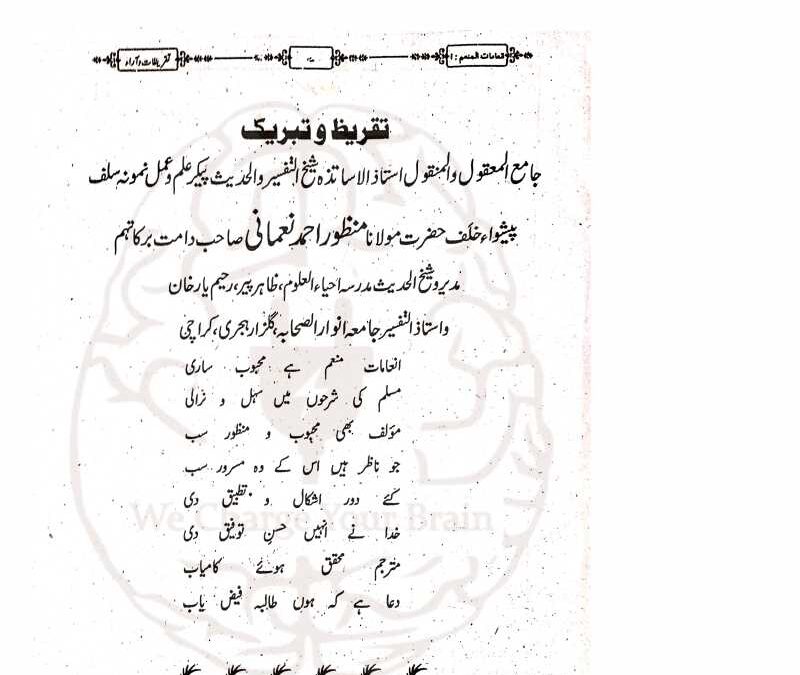 انعامات المنعم : ا
تقریظات و آراء
تقریظ و تبریک
جامع المعقول والمنقول استاذ الاساتذہ شیخ التفسیر والحدیث پیکر علم و عمل نمونہ سلف
پیشواء خلف حضرت مولانا منظور احمد نعمانی صاحب دامت برکاتہم
مدیر و شیخ الحدیث مدرسہ احیاء العلوم، ظاہر پیر، رحیم یار خان
و استاذ التفسیر جامعہ انوار الصحابہ، گلزار ہجری، کراچی
انعامات منعم ہے محبوب ساری
مسلم کی شرحوں میں سہل و نرالی
مؤلف بھی محبوب و منظور سب
جو ناظر ہیں اس کے وہ مسرور سب
کئے دور اشکال و تطبیق دی
خدا نے انہیں حسنِ توفیق دی
مترجم محقق ہوئے کامیاب
دعا ہے کہ ہوں طالبہ فیض یاب
We Charge Your Brain